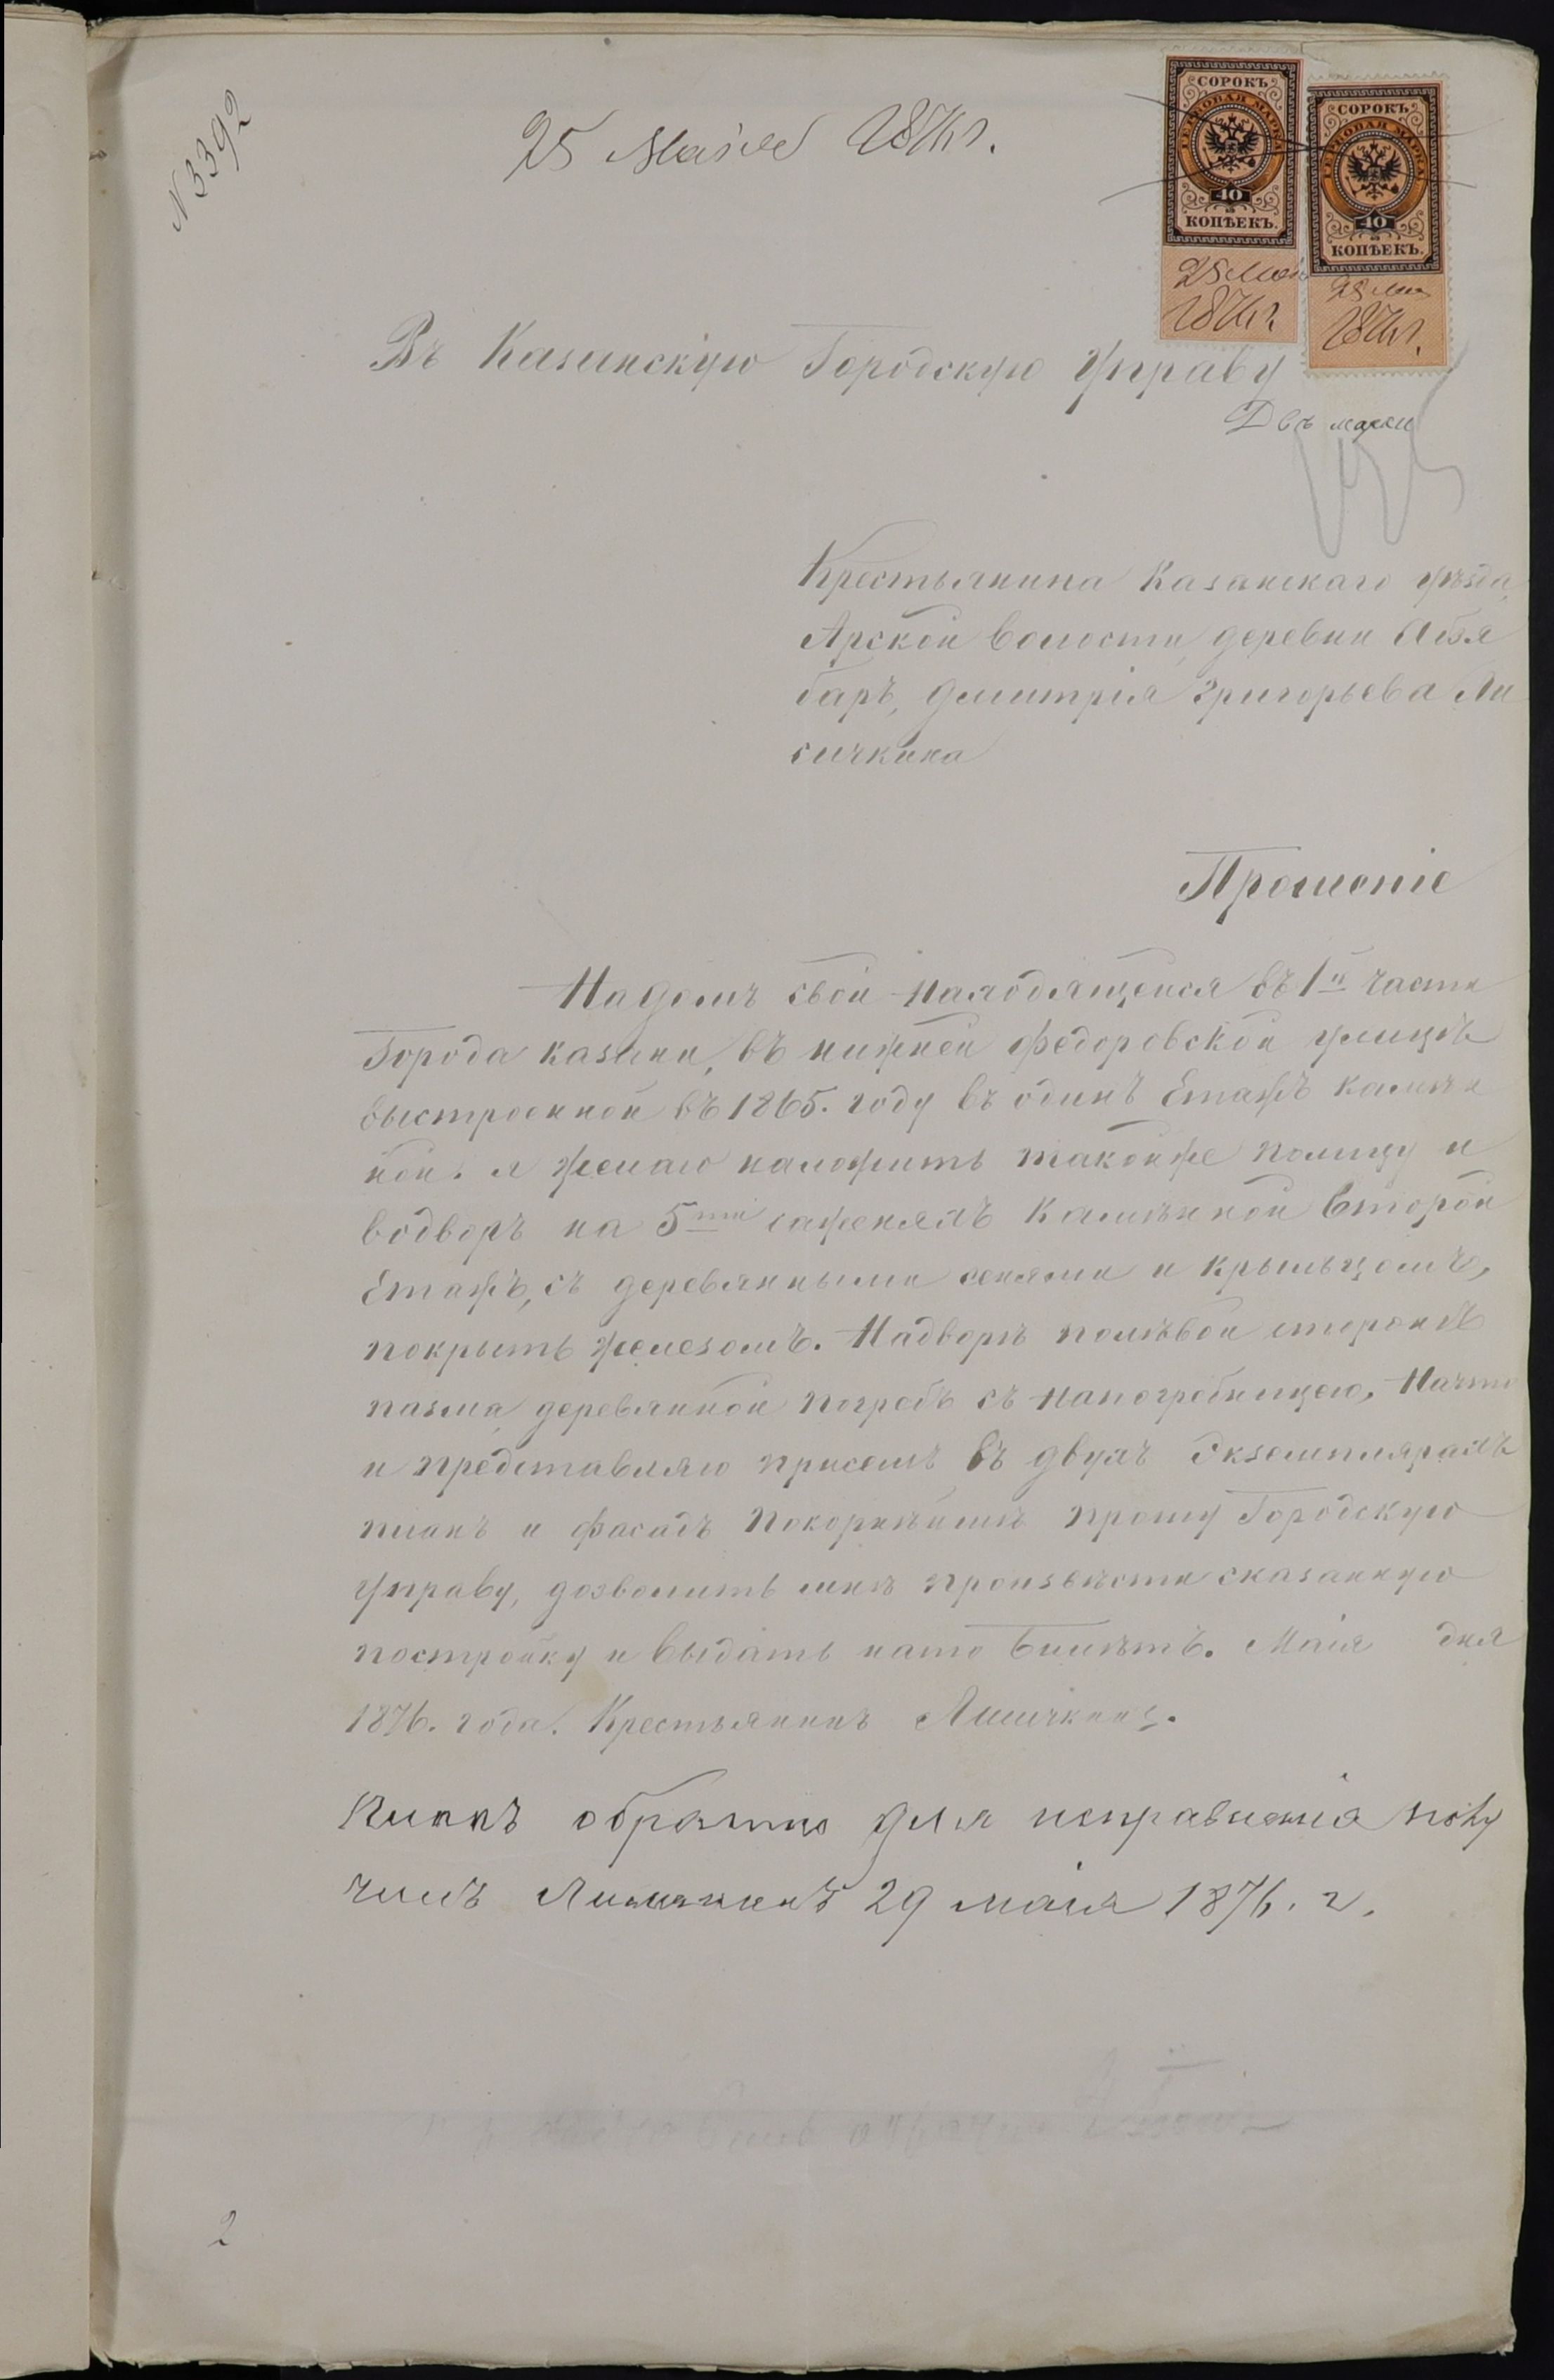 N 3392
25 Маія 1876 г.
СОРОКЪ
ГЕРБОВАЯ МАРКА
40
КОПѢЕКЪ.
25 Маія
1876 г.
СОРОКЪ
ГЕРБОВАЯ МАРКА
40
КОПѢЕКЪ.
25 Мая
1876 г.
Въ Казанскую Городскую Управу
Двѣ марки
Крестьянина Казанскаго уѣзда,
Арской волости, деревни Абзя
баръ, Дмитрія Григорьева Ли
сичкина
Прошеніе
Надомъ свой находящейся въ 1й части
Города казани, въ нижней Федоровской улицѣ
выстроенной въ 1865. году въ одинъ Етажъ камѣн
ной. я желаю наложить такойже полицу и
водворъ на 5ти саженяхъ Камѣнной Второй
Етажъ, съ деревянными сенями и крыльцомъ,
покрыть железомъ. Надворѣ полѣвой сторонѣ
пазма деревянной погребъ съ напогребицею, Начто
и представляю присемъ въ двухъ Экземплярахъ
планъ и фасадъ покорнѣйше прошу Городскую
Управу, дозволить мнѣ произвѣсти сказанную
постройку и выдать нато билѣтъ. Маія дня
1876. года. Крестьянинъ Лисичкинъ.
Планъ обратно для исправленія полу
чилъ Лисичкинъ 29 маія 1876. г.
2